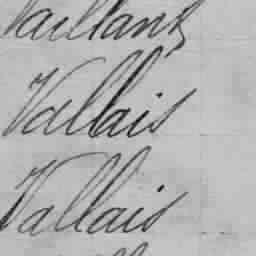 Vaillant
Vallais
Vallais